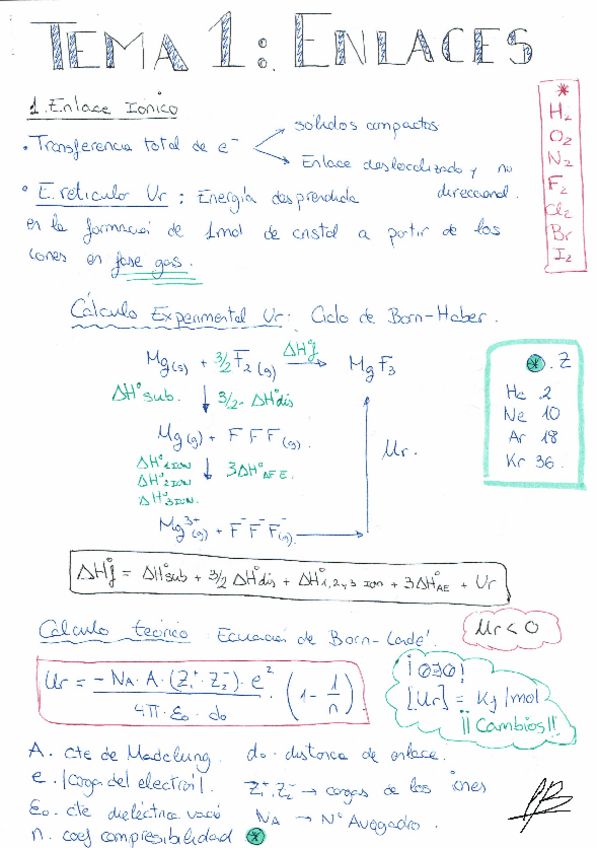 TEMA 1: ENLACES
1. Enlace Ionico
• Transferencia total de e⁻
sólidos compactos
Enlace deslocalizado y no direccional.
• E. reticulo Ur : Energía desprendida
en la formación de 1mol de cristal a partir de los
iones en fase gas.
*
H₂
O₂
N₂
F₂
Cl₂
Br
I₂
Cálculo Experimental Ur: Ciclo de Born-Haber.
Mg(s) + 3/2 F₂(g) ΔHºf MgF₃
ΔHºsub. 3/2· ΔHºdis
Mg(g) + F F F(g).
ΔHº1ION
ΔHº2ION 3ΔHºAFE.
ΔHº3ION.
Mg³⁺(g) + F⁻F⁻F⁻(g).
Ur.
* . Z
He 2
Ne 10
Ar 18
Kr 36.
ΔHºf = ΔHºsub + 3/2 ΔHºdis + ΔHº1,2,y,3 ION + 3ΔHºAE + Ur
Cálculo teórico Ecuación de Born-Landé.
Ur < 0
Ur = −NA·A·(Z₁⁺·Z₂⁻)·e² / 4π·ε₀·d₀ · (1 − 1/n)
¡OJO!
[Ur] = Kj/mol
¡¡Cambios!!
A. cte de Madelung. d₀. distancia de enlace.
e. |carga del electrón|. Z₁⁺.Z₂⁻ → cargas de los iones
ε₀. cte dieléctrica vacío NA → Nº Avogadro.
n. coef compresibilidad *